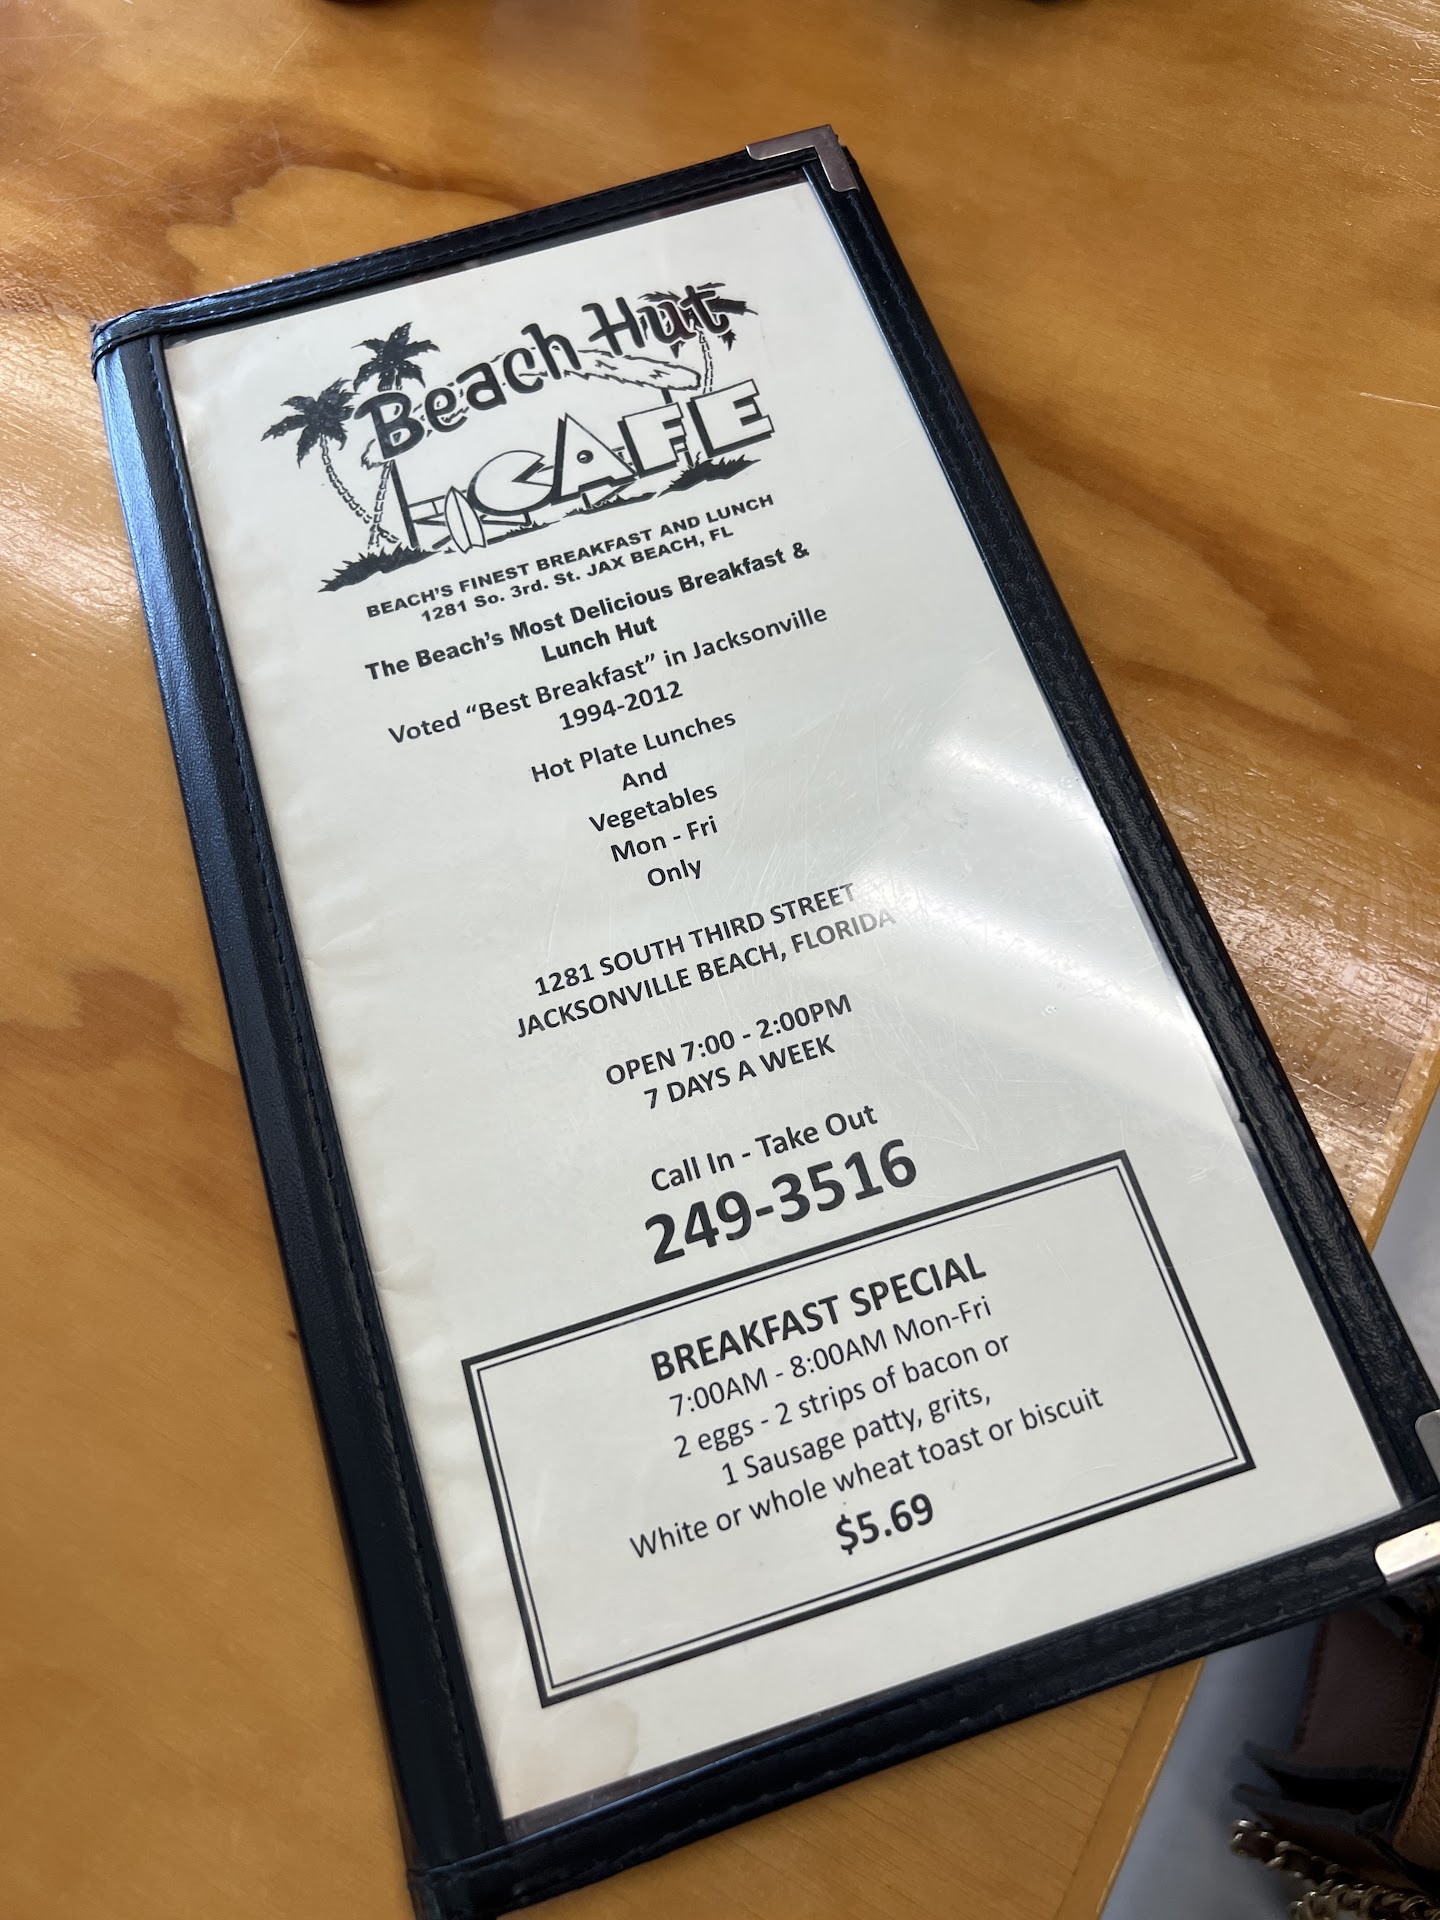 Beach Hut
CAFE
BEACH'S FINEST BREAKFAST AND LUNCH
1281 So. 3rd. St. JAX BEACH, FL
The Beach's Most Delicious Breakfast &
Lunch Hut
Voted “Best Breakfast” in Jacksonville
1994-2012
Hot Plate Lunches
And
Vegetables
Mon - Fri
Only
1281 SOUTH THIRD STREET
JACKSONVILLE BEACH, FLORIDA
OPEN 7:00 - 2:00PM
7 DAYS A WEEK
Call In - Take Out
249-3516
BREAKFAST SPECIAL
7:00AM - 8:00AM Mon-Fri
2 eggs - 2 strips of bacon or
1 Sausage patty, grits,
White or whole wheat toast or biscuit
$5.69